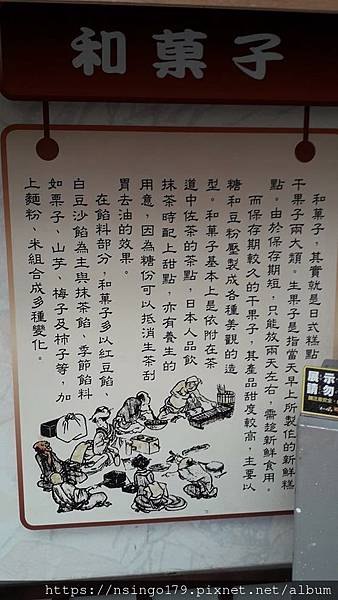 和菓子
和菓子，其實就是日式糕點
干果子兩大類。生果子是指當天早上所製作的新鮮糕
點。由於保存期短，只能放兩天左右，需趁新鮮食用。
而保存期較久的干果子，其產品甜度較高，主要以
糖和豆粉壓製成各種美觀的造
型。和菓子基本上是依附在茶
道中佐茶的茶點，日本人品飲
抹茶時配上甜點，亦有養生的
用意，因為糖份可以抵消生茶刮
胃去油的效果。
在餡料部分，和菓子多以紅豆餡、
白豆沙餡為主與抹茶餡、季節餡料
如栗子、山芋、梅子及柿子等，加
上麵粉、米組合成多種變化。
展示
請勿
https://nsingo179.pixnet.net/album